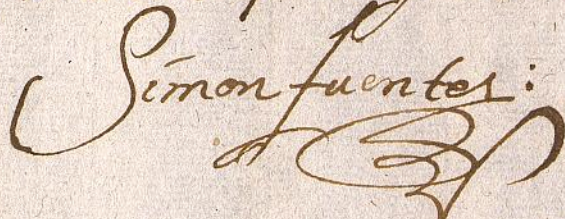 Simon fuentes: